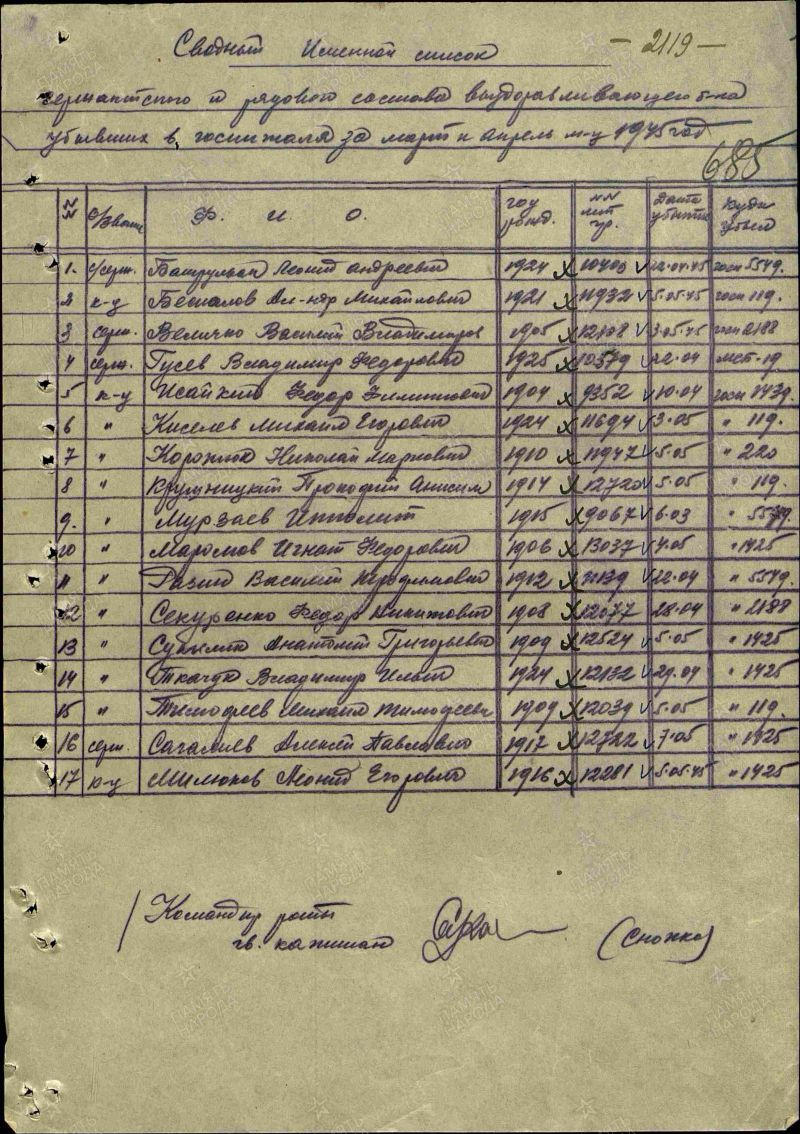 Сводный Именной список
-2119-
сержантского и рядового состава выздоравливающего б-на
убывших в госпиталя за март и апрель м-ц 1945 год
685
NN Звание Ф. И. О. год рожд. NN Дата убытия Куда убыл
1. с/серж. Леонид Андреевич 1924 10400 12.04.45 госп 5549.
2 к-ц Беспалов Ал-ндр Михайлович 1921 11932 5.05.45 госп 119.
3 серж. Величко Василий Владимиров 1905 12108 3.05.45 госп 2188
4 серж. Гусев Владимир Федорович 1925 10579 22.04
5 к-ц Федор 1904 9352 10.04 госп
6 " Киселев Михаил Егорович 1924 11694 3.05 " 119.
7 " Николай Маркович 1910 11947 5.05 " 220
8 " Крушницкий Прокофий Анисим 1914 12720 5.05 " 119.
9. " Мурзаев Ипполит 1915 9067 6.03 " 5549.
10 " Игнат Федорович 1906 13037 4.05 " 1425
11 " Василий 1912 11139 22.04 " 5549.
12 " Секуренко Федор Никитович 1908 12077 28.04 " 2188
13 " Анатолий Григорьевич 1909 12524 5.05 " 1425
14 " Ткачук Владимир Ильич 1924 12132 29.04 " 1425
15 " Тимофеев Михаил Тимофеев 1909 12039 5.05 " 119.
16 серж. Алексей Павлович 1917 12722 7.05 " 1425
17 к-ц Милюков Леонид Егорович 1916 12281 5.05.45 " 1425
Командир роты
гв. капитан (Сножко)
ПАМЯТЬ НАРОДА